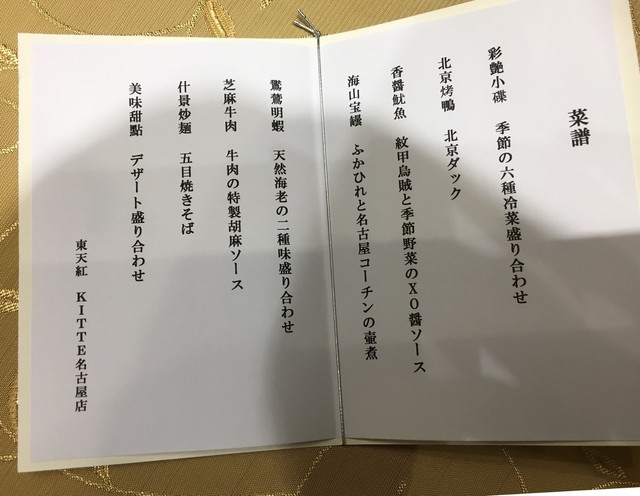 菜譜
彩艶小碟 季節の六種冷菜盛り合わせ
北京烤鴨 北京ダック
香醤魷魚 紋甲烏賊と季節野菜のXO醤ソース
海山宝罐 ふかひれと名古屋コーチンの壷煮
鴛鴦明蝦 天然海老の二種味盛り合わせ
芝麻牛肉 牛肉の特製胡麻ソース
什景炒麺 五目焼きそば
美味甜點 デザート盛り合わせ
東天紅 KITTE名古屋店